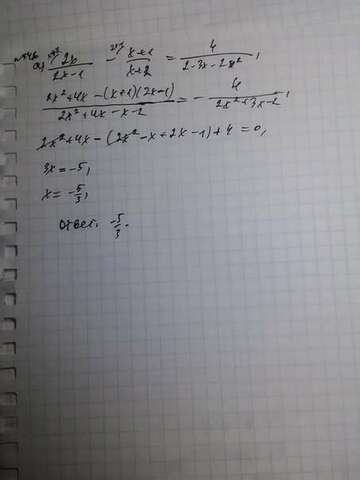 a) 2x/(2x-1) - (x+1)/(x+2) = 4/(2-3x-2x²),
(2x²+4x-(x+1)(2x-1))/(2x²+4x-x-2) = -4/(2x²+3x-2),
2x²+4x-(2x²-x+2x-1)+4=0,
3x=-5,
x=-5/3,
Ответ: -5/3.